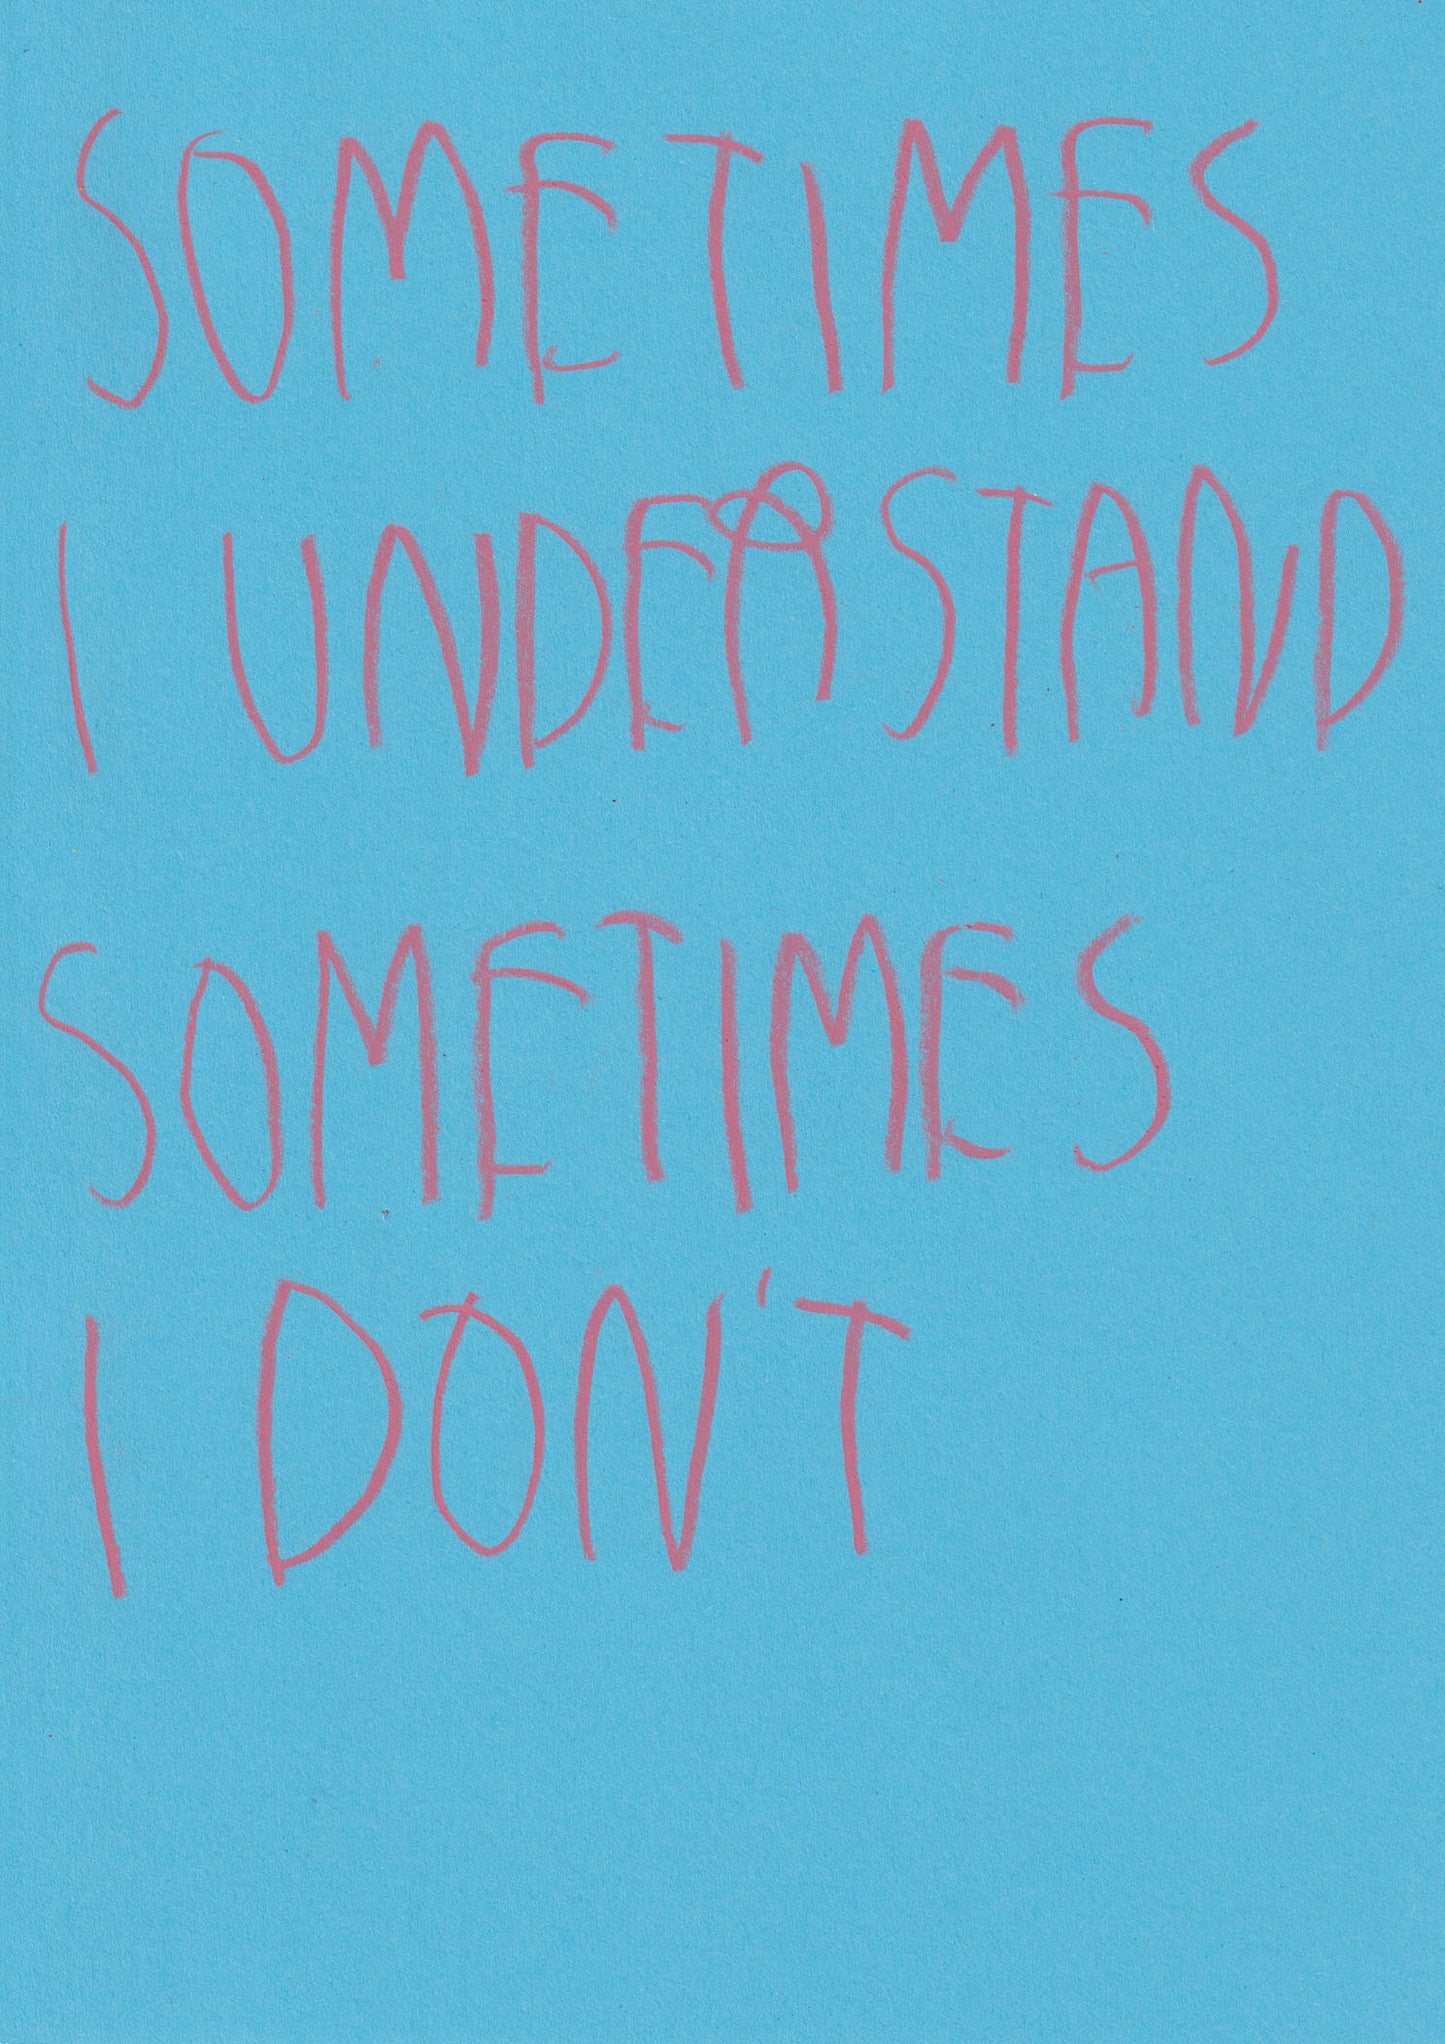 SOMETIMES
I UNDERSTAND
SOMETIMES
I DON'T